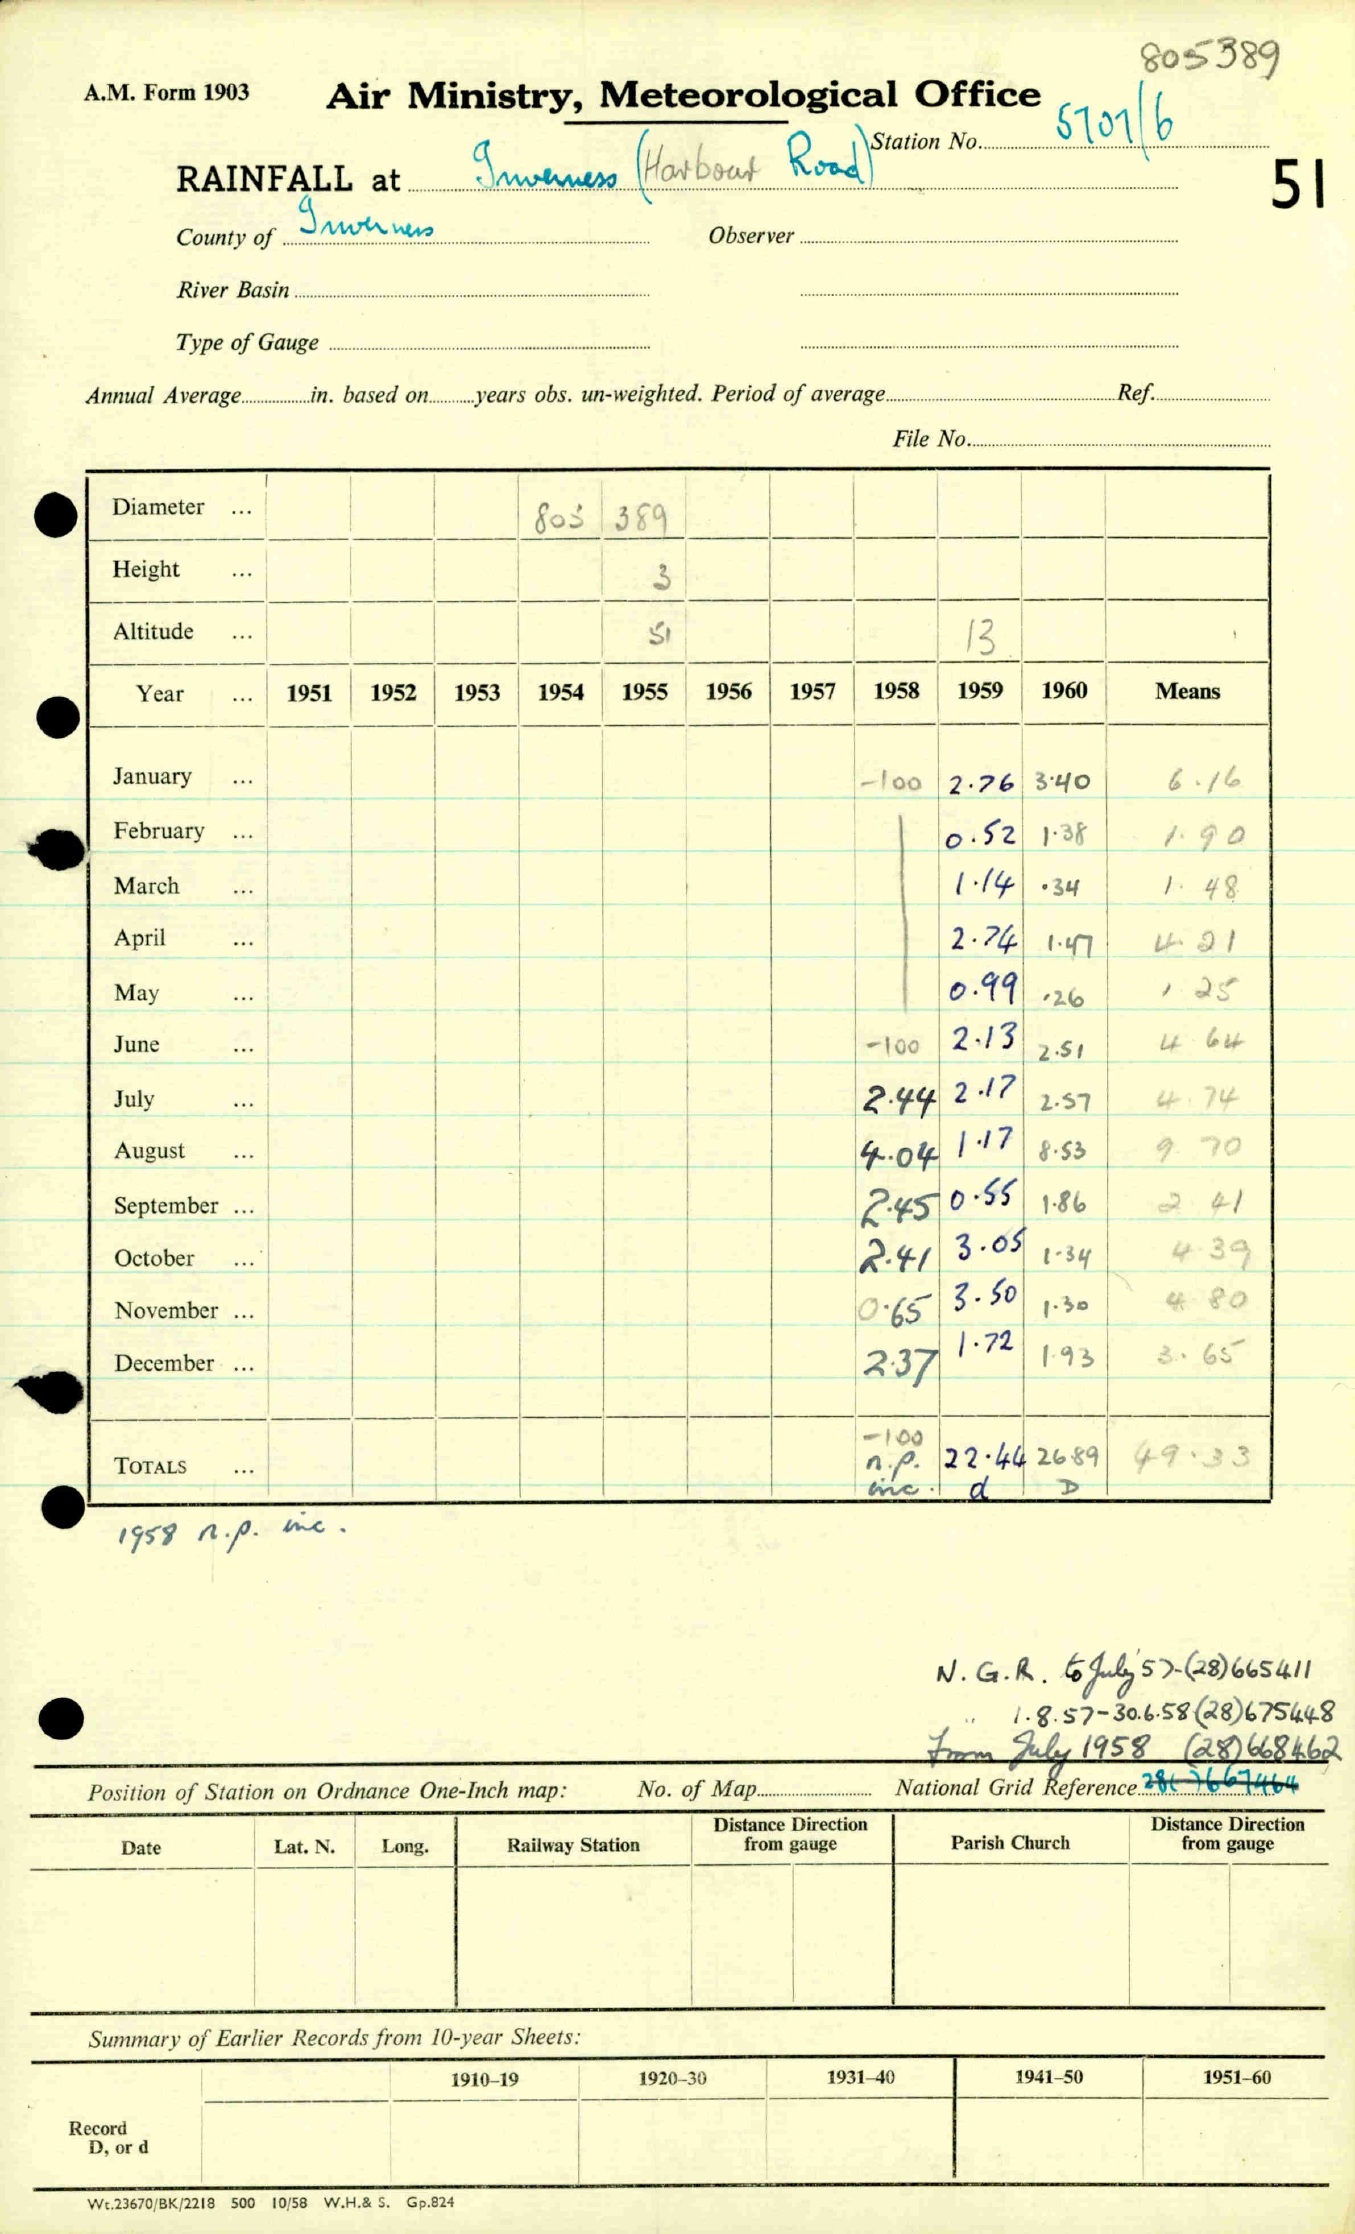 805389
A.M. Form 1903 Air Ministry, Meteorological Office
Station No. 5707/6
RAINFALL at Inverness (Harbour Road)
51
County of Inverness Observer
River Basin
Type of Gauge
Annual Average in. based on years obs. un-weighted. Period of average Ref.
File No.
Diameter ... 803 389
Height ... 3
Altitude ... 51 13
Year ... 1951 1952 1953 1954 1955 1956 1957 1958 1959 1960 Means
January ... -100 2.76 3.40 6.16
February ... 0.52 1.38 1.90
March ... 1.14 .34 1.48
April ... 2.74 1.47 4.21
May ... 0.99 .26 1 25
June ... -100 2.13 2.51 4 64
July ... 2.44 2.17 2.57 4.74
August ... 4.04 1.17 8.53 9 70
September ... 2.45 0.55 1.86 2 41
October ... 2.41 3.05 1.34 4.39
November ... 0.65 3.50 1.30 4 80
December ... 2.37 1.72 1.93 3.65
-100
TOTALS ... n.p. 22.44 2689 49.33
inc. d D
1958 n.p. inc.
N.G.R. to July '57-(28)665411
" 1.8.57-30.6.58 (28)675448
From July 1958 (28)668462
Position of Station on Ordnance One-Inch map: No. of Map National Grid Reference 28( )667464
Date Lat. N. Long. Railway Station Distance Direction from gauge Parish Church Distance Direction from gauge
Summary of Earlier Records from 10-year Sheets:
1910–19 1920–30 1931–40 1941–50 1951–60
Record
D, or d
Wt.23670/BK/2218 500 10/58 W.H.& S. Gp.824